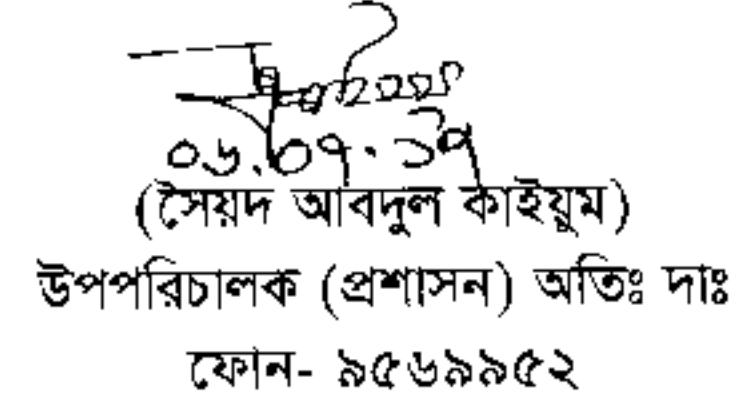 ০৬.০৭.১৭
(সৈয়দ আবদুল কাইয়ুম)
উপপরিচালক (প্রশাসন) অতিঃ দাঃ
ফোন- ৯৫৬৯৯৫২